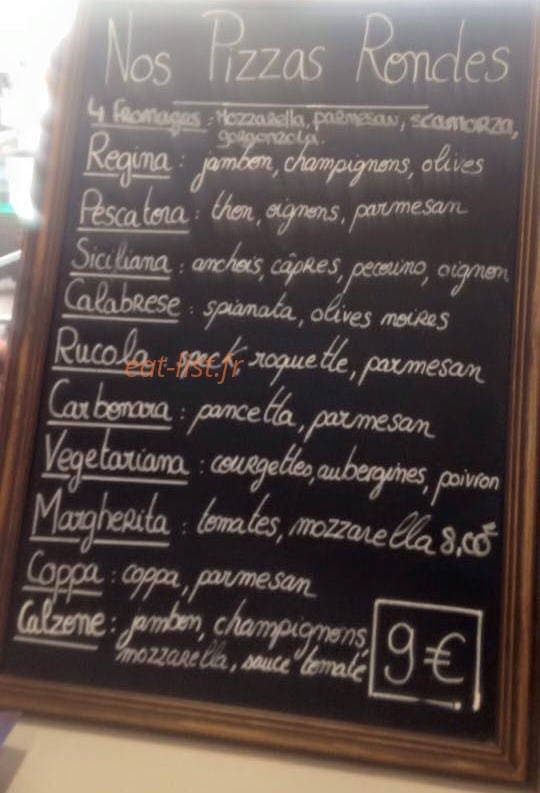 Nos Pizzas Rondes
4 Fromages : Mozzarella, parmesan, scamorza,
gorgonzola.
Regina : jambon, champignons, olives
Pescatora : thon, oignons, parmesan
Siciliana : anchois, câpres, pecorino, oignon
Calabrese : spianata, olives noires
Rucola speck roquette, parmesan
eat-list.fr
Carbonara : pancetta, parmesan
Vegetariana : courgettes, aubergines, poivron
Margherita : tomates, mozzarella 8,00€
Coppa : coppa, parmesan
Calzone : jambon, champignons,
mozzarella, sauce tomate
9€